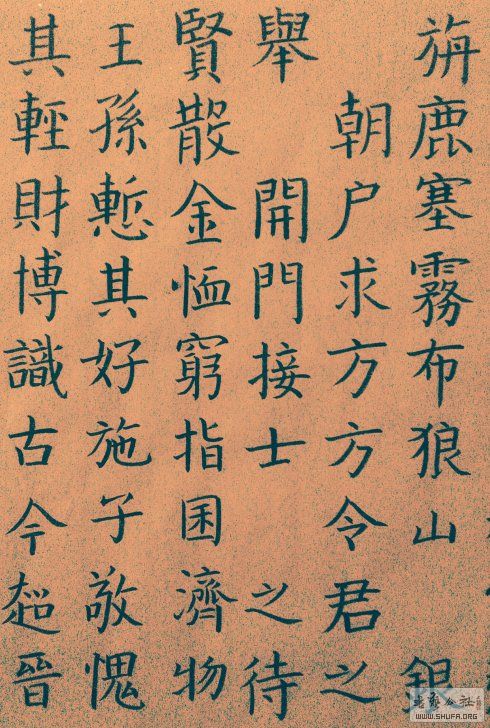 旃鹿塞霧布狼山 銀
朝户求方方令君之
舉 開門接士 之待
賢散金恤窮指囷濟物
王孫慙其好施子敬愧
其輕財博識古今超晉
WWW.SHUFA.ORG